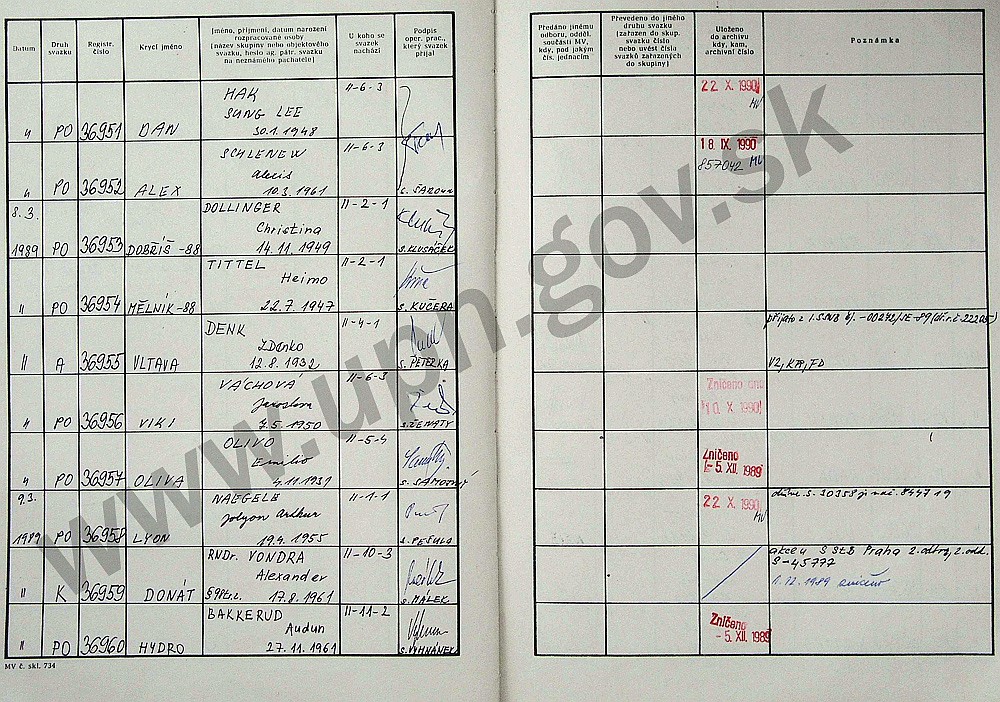 Datum
Druh svazku
Registr. číslo
Krycí jméno
Jméno, příjmení, datum narození
rozpracované osoby
(název skupiny nebo objektového
svazku, heslo ag. pátr. svazku
na neznámého pachatele)
U koho se
svazek
nachází
Podpis
oper. prac.,
který svazek
přijal
Předáno jinému
odboru, odděl.
součásti MV,
kdy, pod jakým
čís. jednacím
Převedeno do jiného
druhu svazku
(zařazen do skup.
svazku číslo
nebo uvést čísla
svazků zařazených
do skupiny)
Uloženo
do archivu
kdy, kam,
archivní číslo
Poznámka
HAK
SUNG LEE
" PO 36951 DAN 30.1.1948 II-6-3
22 X. 1990
MV
SCHLENEW
Alexis
" PO 36952 ALEX 10.3.1961 II-6-3
18. IX. 1990
857042 MV
8.3.
DOLLINGER
Christina
1989 PO 36953 DOBŘÍŠ-88 14.11.1949 II-2-1 S. KLUSÁČEK
TITTEL
Heimo
" PO 36954 MĚLNÍK-88 22.7.1947 II-2-1 S. KUČERA
DENK
Zdenko
" A 36955 VLTAVA 12.8.1932 II-4-1 S. PETERKA
přijato z
VÁCHOVÁ
Jaroslava
" PO 36956 VIKI 7.5.1950 II-6-3 S. ŽENATÝ
Zničeno dne
10 X. 1990
OLIVO
Emilio
" PO 36957 OLIVA 4.11.1931 II-5-4 S. SAMOTNÝ
Zničeno
- 5. XII. 1989
9.3.
NAEGELE
Jolyon Arthur
1989 PO 36958 LYON 19.4.1955 II-1-1 S. PEŠULA
22 X. 1990
MV
RNDr. VONDRA
Alexander
" K 36959 DONÁT 17.8.1961 II-10-3 S. MÁLEK
akce u S StB Praha 2.odbor, 2.odd.
S-45777
1.12.1989 zničeno
BAKKERUD
Audun
" PO 36960 HYDRO 27.11.1961 II-11-2 S. VYHNÁNEK
Zničeno
- 5. XII. 1989
MV č. skl. 734
www.upn.gov.sk